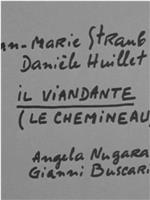 an-Marie Straub
Danièle Huillet
IL VIANDANTE
(LE CHEMINEAU
Angela Nugara
Gianni Buscari